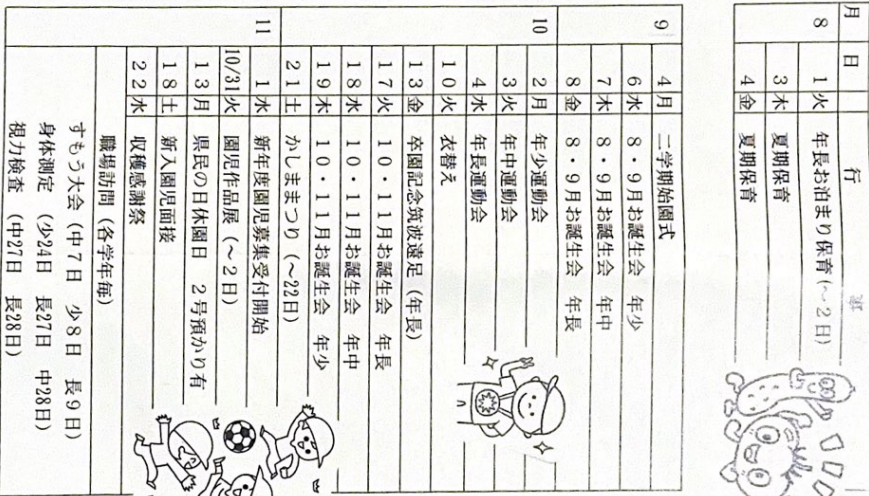 月 日 行 事
8
1 火 年長お泊まり保育(~2日)
3 木 夏期保育
4 金 夏期保育
9
4 月 二学期始園式
6 水 8・9月お誕生会 年少
7 木 8・9月お誕生会 年中
8 金 8・9月お誕生会 年長
10
2 月 年少運動会
3 火 年中運動会
4 水 年長運動会
10 火 衣替え
13 金 卒園記念筑波遠足(年長)
17 火 10・11月お誕生会 年長
18 水 10・11月お誕生会 年中
19 木 10・11月お誕生会 年少
21 土 かしままつり(~22日)
11
1 水 新年度園児募集受付開始
10/31 火 園児作品展(~2日)
13 月 県民の日休園日 2号預かり有
18 土 新入園児面接
22 水 収穫感謝祭
職場訪問(各学年毎)
すもう大会(中7日 少8日 長9日)
身体測定 (少24日 長27日 中28日)
視力検査 (中27日 長28日)